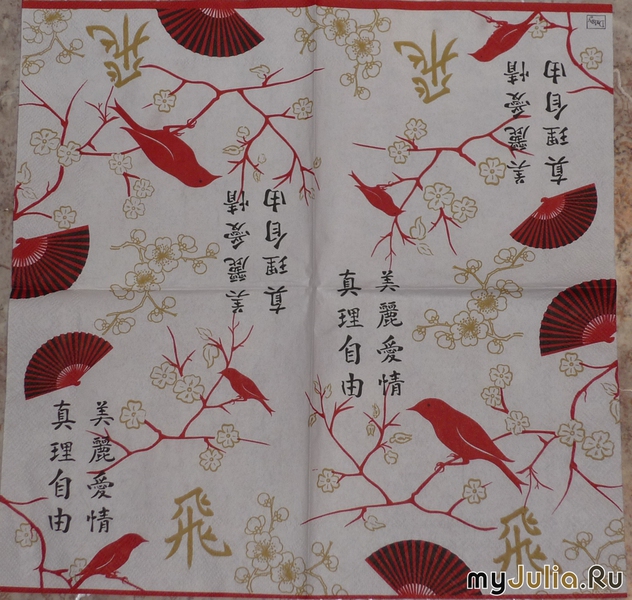 飛
飛
美麗愛情
真理自由
美麗愛情
真理自由
美麗愛情
真理自由
美麗愛情
真理自由
飛
飛
myJulia.Ru